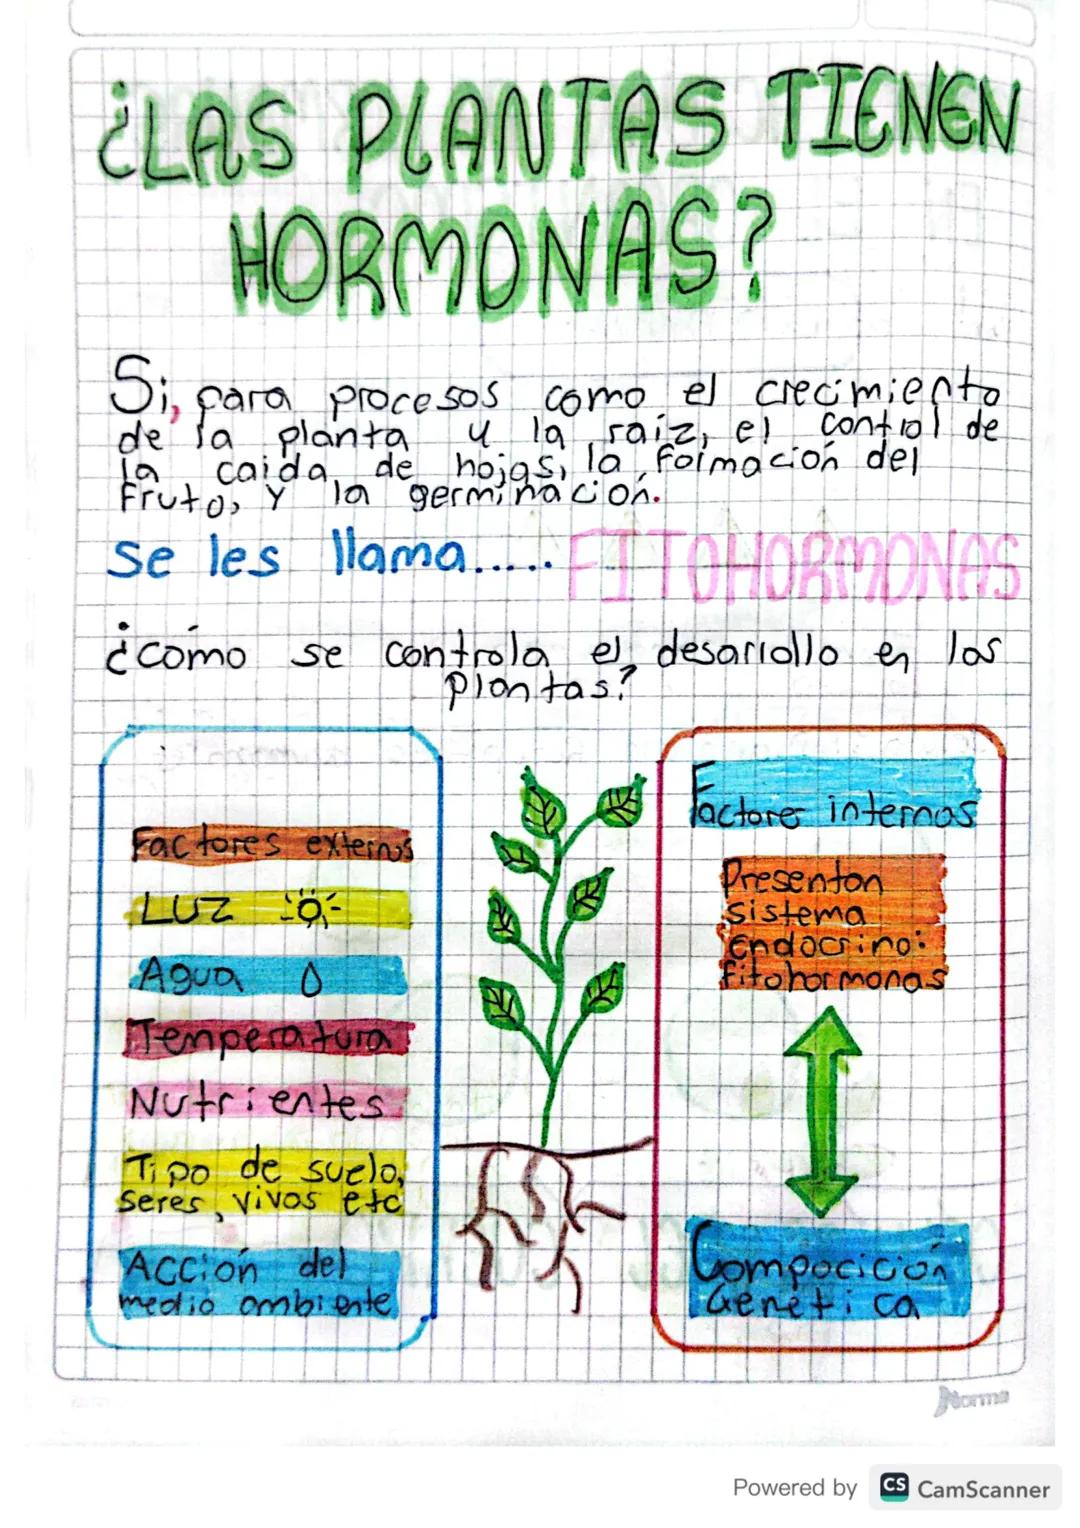 ¿LAS PLANTAS TIENEN
HORMONAS?
Si, para procesos como el crecimiento
de la planta y la raíz, el control de
la caida de hojas, la formación del
Fruto, y la germinación.
se les llama..... FITOHORMONAS
¿como se controla el desarrollo en las
plantas?
Factores externos
LUZ
Agua
Temperatura
Nutrientes
Tipo de suelo,
seres vivos etc
Acción del
medio ambiente
Factores internos
Presentan
sistema
endocrino:
fitohormonas
Compocición
Genetica
Norma
Powered by CS CamScanner